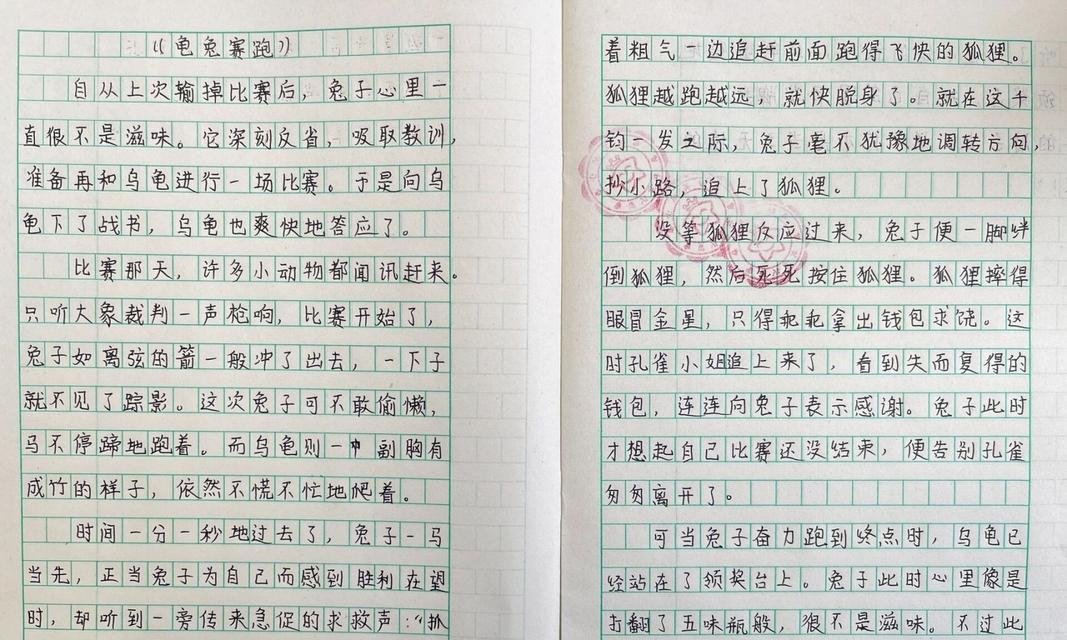 《龟兔赛跑》
自从上次输掉比赛后，兔子心里一
直很不是滋味。它深刻反省，吸取教训，
准备再和乌龟进行一场比赛。于是向乌
龟下了战书，乌龟也爽快地答应了。
比赛那天，许多小动物都闻讯赶来。
只听大象裁判一声枪响，比赛开始了，
兔子如离弦的箭一般冲了出去，一下子
就不见了踪影。这次兔子可不敢偷懒，
马不停蹄地跑着。而乌龟则一副胸有
成竹的样子，依然不慌不忙地爬着。
时间一分一秒地过去了，兔子一马
当先，正当兔子为自己而感到胜利在望
时，却听到一旁传来急促的求救声：“抓
着粗气一边追赶前面跑得飞快的狐狸。
狐狸越跑越远，就快脱身了。就在这千
钧一发之际，兔子毫不犹豫地调转方向，
抄小路，追上了狐狸。
没等狐狸反应过来，兔子便一脚绊
倒狐狸，然后死死按住狐狸。狐狸摔得
眼冒金星，只得乖乖拿出钱包求饶。这
时孔雀小姐追上来了，看到失而复得的
钱包，连连向兔子表示感谢。兔子此时
才想起自己比赛还没结束，便告别孔雀
匆匆离开了。
可当兔子奋力跑到终点时，乌龟已
经站在了领奖台上。兔子此时心里像是
打翻了五味瓶般，很不是滋味。不过此